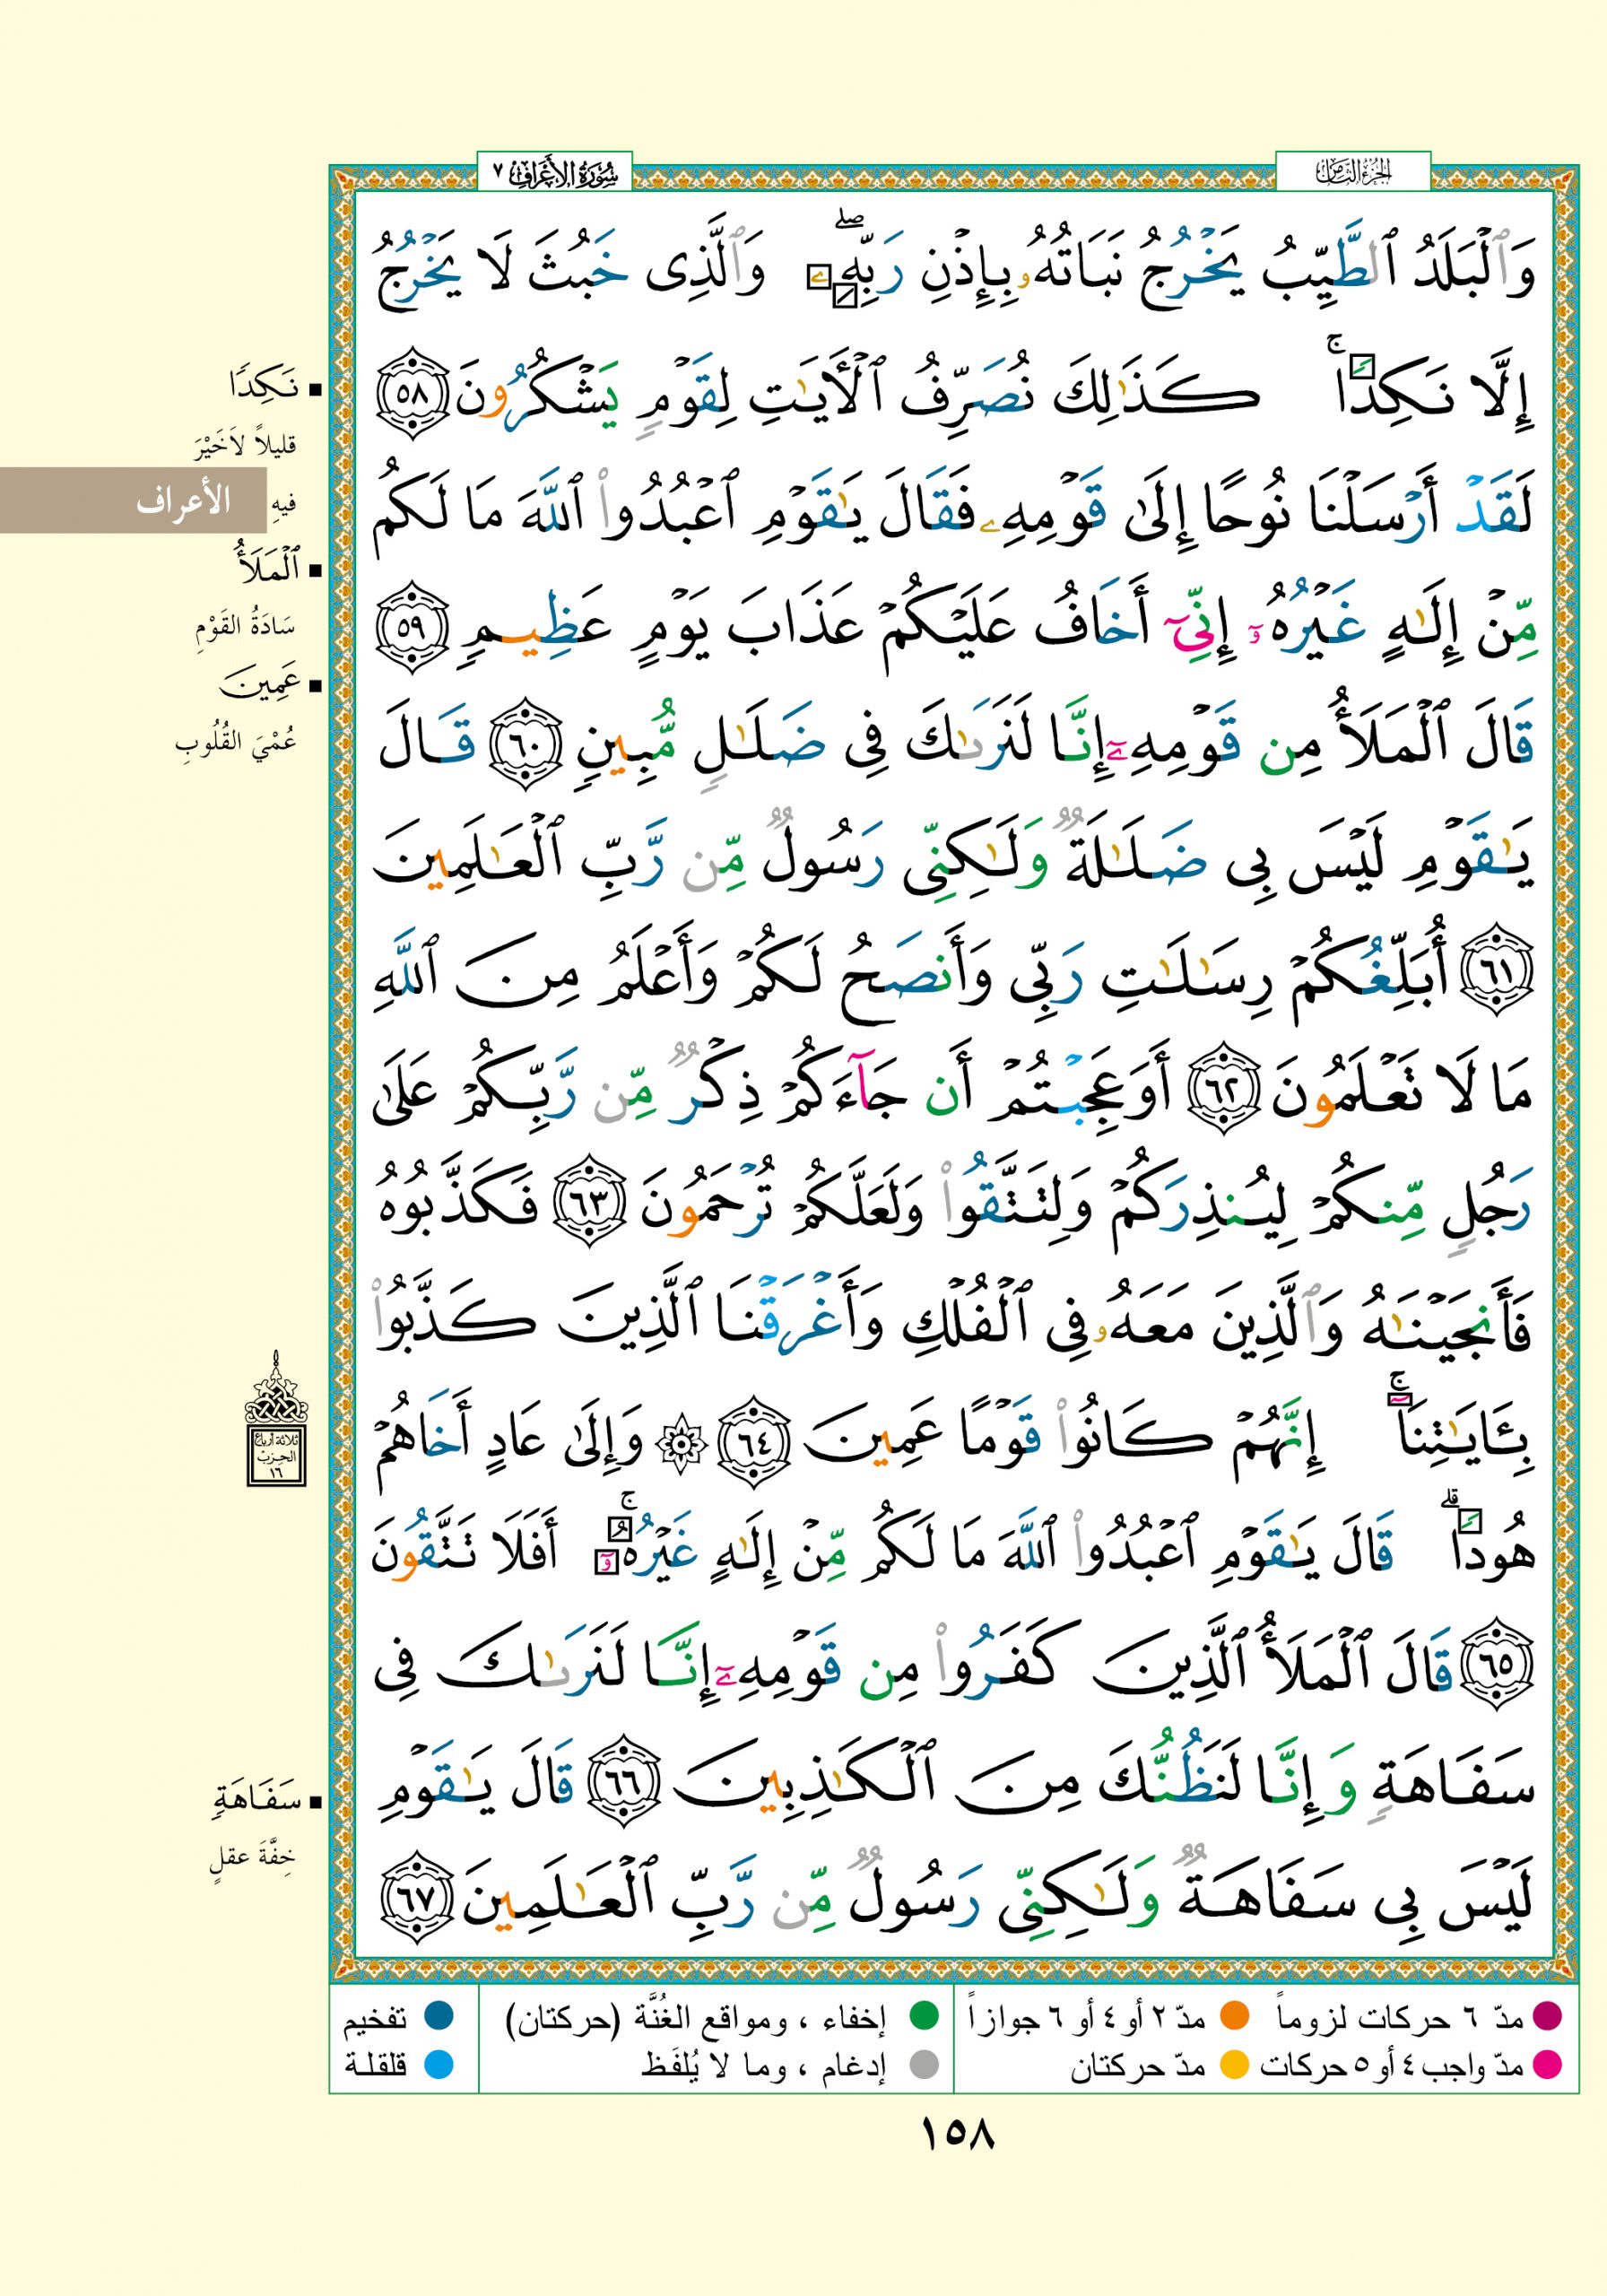 الجزء الثامن
سورة الأعراف ٧
وَٱلْبَلَدُ ٱلطَّيِّبُ يَخْرُجُ نَبَاتُهُۥ بِإِذْنِ رَبِّهِۦ ۖ وَٱلَّذِى خَبُثَ لَا يَخْرُجُ
إِلَّا نَكِدًا ۚ كَذَٰلِكَ نُصَرِّفُ ٱلْأَيَـٰتِ لِقَوْمٍ يَشْكُرُونَ ٥٨
لَقَدْ أَرْسَلْنَا نُوحًا إِلَىٰ قَوْمِهِۦ فَقَالَ يَـٰقَوْمِ ٱعْبُدُوا۟ ٱللَّهَ مَا لَكُم
مِّنْ إِلَـٰهٍ غَيْرُهُۥٓ إِنِّىٓ أَخَافُ عَلَيْكُمْ عَذَابَ يَوْمٍ عَظِيمٍ ٥٩
قَالَ ٱلْمَلَأُ مِن قَوْمِهِۦٓ إِنَّا لَنَرَىٰكَ فِى ضَلَـٰلٍ مُّبِينٍ ٦٠ قَالَ
يَـٰقَوْمِ لَيْسَ بِى ضَلَـٰلَةٌ وَلَـٰكِنِّى رَسُولٌ مِّن رَّبِّ ٱلْعَـٰلَمِينَ
٦١ أُبَلِّغُكُمْ رِسَـٰلَـٰتِ رَبِّى وَأَنصَحُ لَكُمْ وَأَعْلَمُ مِنَ ٱللَّهِ
مَا لَا تَعْلَمُونَ ٦٢ أَوَعَجِبْتُمْ أَن جَآءَكُمْ ذِكْرٌ مِّن رَّبِّكُمْ عَلَىٰ
رَجُلٍ مِّنكُمْ لِيُنذِرَكُمْ وَلِتَتَّقُوا۟ وَلَعَلَّكُمْ تُرْحَمُونَ ٦٣ فَكَذَّبُوهُ
فَأَنجَيْنَـٰهُ وَٱلَّذِينَ مَعَهُۥ فِى ٱلْفُلْكِ وَأَغْرَقْنَا ٱلَّذِينَ كَذَّبُوا۟
بِـَٔايَـٰتِنَآ ۚ إِنَّهُمْ كَانُوا۟ قَوْمًا عَمِينَ ٦٤ ۞ وَإِلَىٰ عَادٍ أَخَاهُمْ
هُودًا ۗ قَالَ يَـٰقَوْمِ ٱعْبُدُوا۟ ٱللَّهَ مَا لَكُم مِّنْ إِلَـٰهٍ غَيْرُهُۥٓ ۚ أَفَلَا تَتَّقُونَ
٦٥ قَالَ ٱلْمَلَأُ ٱلَّذِينَ كَفَرُوا۟ مِن قَوْمِهِۦٓ إِنَّا لَنَرَىٰكَ فِى
سَفَاهَةٍ وَإِنَّا لَنَظُنُّكَ مِنَ ٱلْكَـٰذِبِينَ ٦٦ قَالَ يَـٰقَوْمِ
لَيْسَ بِى سَفَاهَةٌ وَلَـٰكِنِّى رَسُولٌ مِّن رَّبِّ ٱلْعَـٰلَمِينَ ٦٧
نَكِدًا
قليلاً لاَخَيْرَ
فيهِ
الأعراف
ٱلْمَلَأُ
سَادَةُ القَوْمِ
عَمِينَ
عُمْيَ القُلُوبِ
ثلاثة أرباع
الحزب
١٦
سَفَاهَةٍ
خِفَّةَ عقلٍ
مدّ ٦ حركات لزوماً
مدّ ٢ أو ٤ أو ٦ جوازاً
إخفاء ، ومواقع الغُنَّة (حركتان)
تفخيم
مدّ واجب ٤ أو ٥ حركات
مدّ حركتان
إدغام ، وما لا يُلفَظ
قلقلة
١٥٨